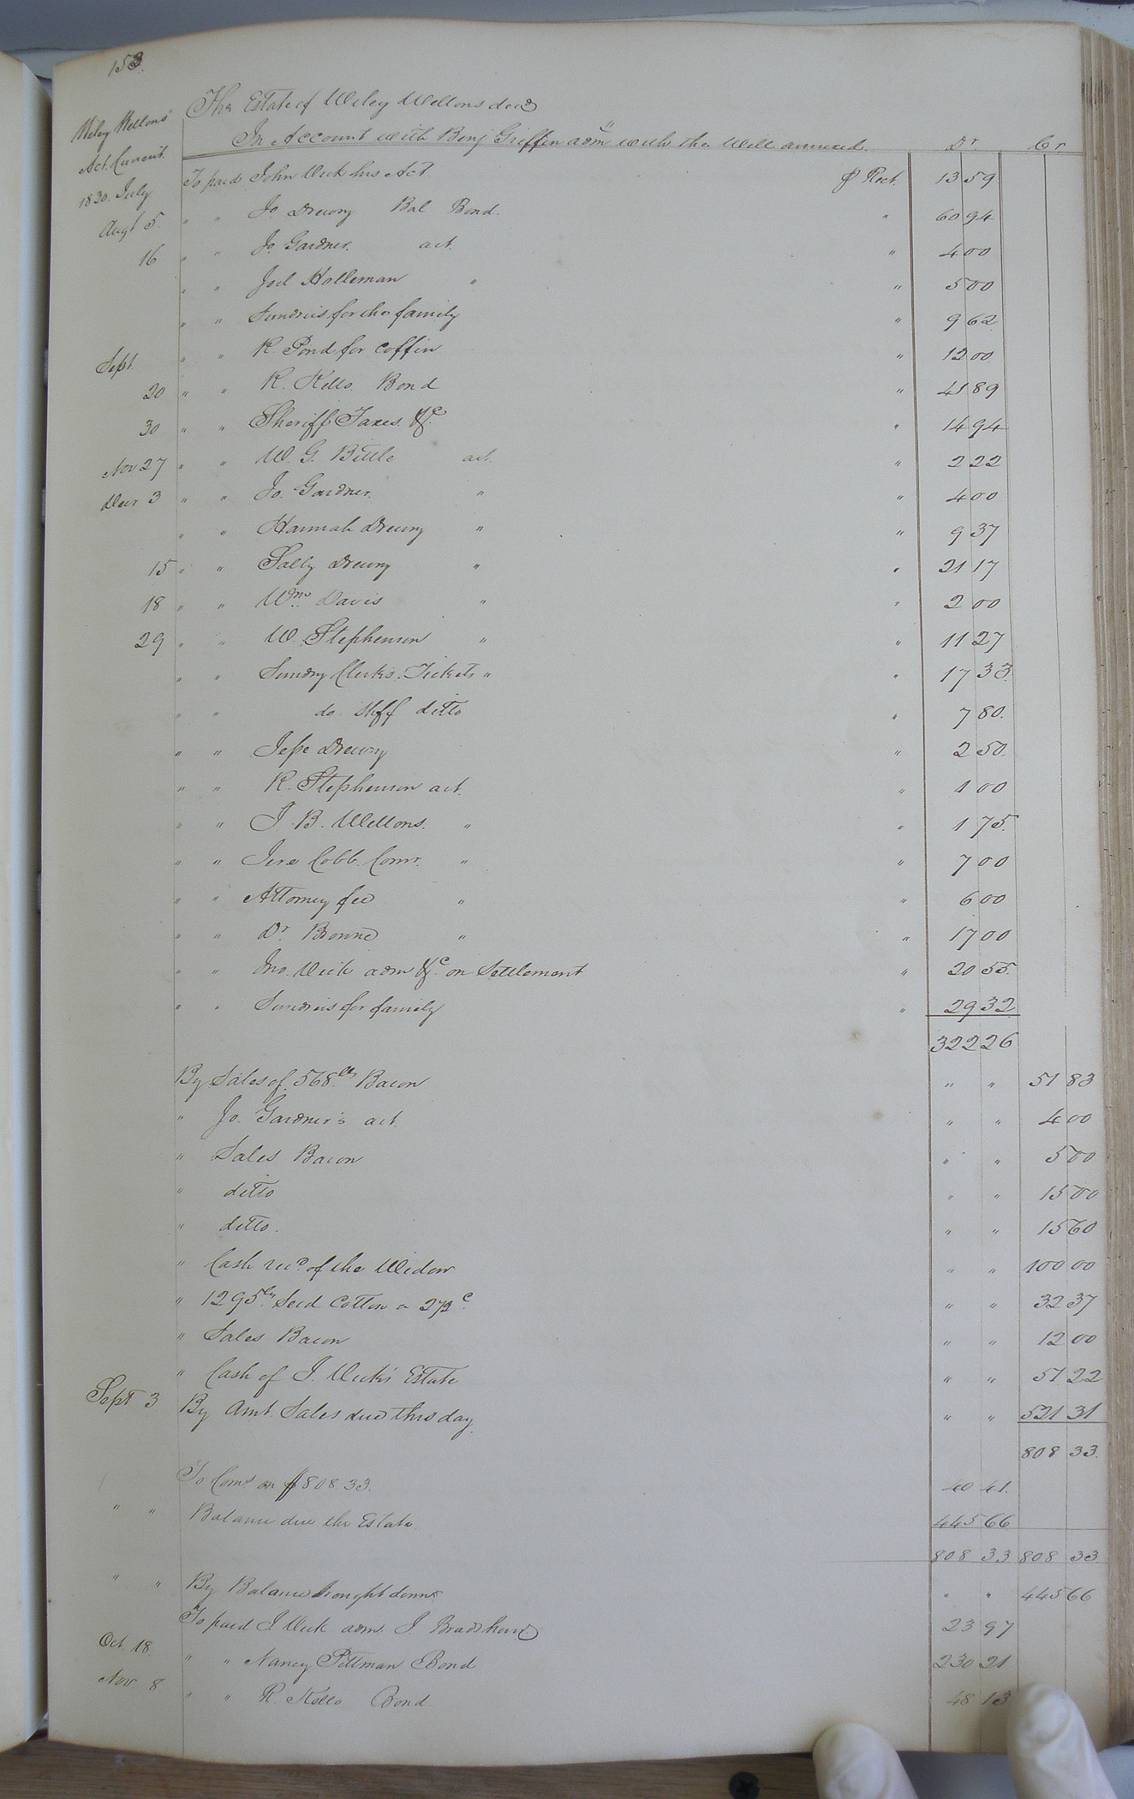 153.
The Estate of Wiley Wellons decd
In Account with Benj Griffin adm with the Will annexed. Dr Cr
Wiley Wellons
Act. Current.
1830. July To paid John Vick his Act ⅌ Rect. 13 59
Augt 5. " " Jo Drewry Bal Bond. " 60 94
16 " " Jo. Gardner. act. " 4 00
" " Joel Holleman " " 5 00
" " Sundries for the family " 9 62
Sept. " " R Pond for Coffin " 12 00
20 " " R. Kello. Bond " 41 89
30 " " Sheriff Taxes &c. " 14 94
Nov 27 " " W. G. Bittle act. " 2 22
Decr 3 " " Jo. Gardner. " " 4 00
" " Hannah Drewry " " 9 37
15 " " Sally Drewry " " 21 17
18 " " Wm Davis " " 2 00
29 " " W. Stephenson " " 11 27
" " Sundry Clerks. Tickets " " 17 33.
" " do. Shff ditto " 7 80.
" " Jesse Drewry " 2 50.
" " R. Stephenson act. " 1 00
" " J. B. Wellons. " " 1 75.
" " Jere Cobb. Comr. " " 7 00
" " Attorney fee " " 6 00
" " Dr. Browne " " 17 00
" " Jno. Vick adm &c. on Settlement " 20 55.
" " Sundries for family " 29 32
322 26
By Sales of 568 lbs Bacon " " 51 83
" Jo. Gardner's act. " " 4 00
" Sales Bacon " " 5 00
" ditto " " 15 00
" ditto. " " 15 60
" Cash recd of the Widow " " 100 00
" 1295 lbs Seed Cotton a 2½ c. " " 32 37
" Sales Bacon " " 12 00
" Cash of J. Vick's Estate " " 51 22
Sept 3 By Amt. Sales due this day. " " 521 31
808 33.
To Coms on $808 33. 40 41.
" " Balance due the Estate 445 66
808 33 808 33
" " By Balance brought down " " 445 66
To paid J Vick adm. J 23 97
Oct 18 " " Nancy Pittman Bond 230 21
Nov 8 " " R Kello Bond 48 13